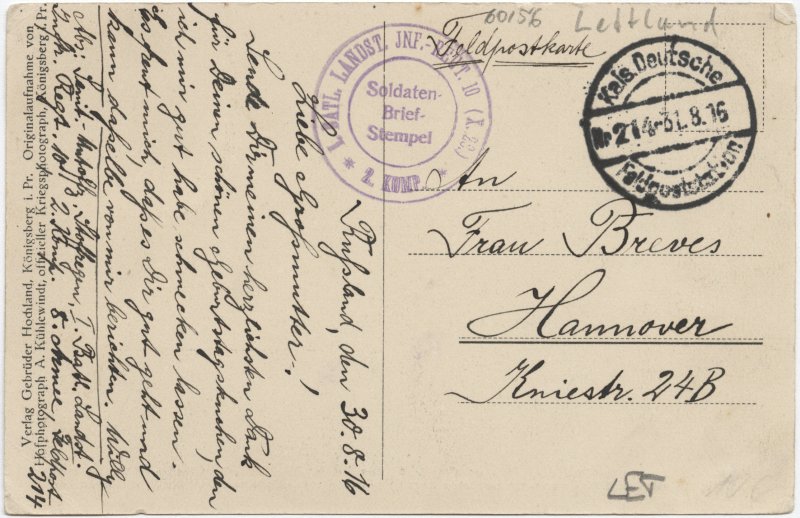 60156 Lettland
Feldpostkarte
I. BATL. LANDST. INF.-REGT. 10 (X. 20.)
Soldaten-
Brief-
Stempel
* 2. KOMP. *
Kais. Deutsche
Nr 214 -31.8.16
Feldpoststation
An
Frau Breves
Hannover
Kniestr. 24B
LET
Rußland, den 30.8.16
Liebe Großmutter!
Sende Dir meinen herzlichsten Dank
für Deinen schönen Geburtstagskuchen, den
ich mir gut habe schmecken lassen.
Es freut mich, daß es Dir gut geht und
kann dasselbe von mir berichten. Willy
Abs. B. Stoffregen, I. Batl. Landst.
Inft. Regt. 10 2. Komp. 8. Armee Feldpost
214
Verlag Gebrüder Hochland, Königsberg i. Pr. Originalaufnahme von
Hofphotograph A. Kühlewindt, offizieller Kriegsphotograph, Königsberg i. Pr.